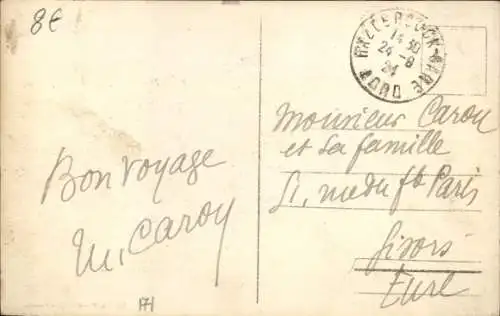 8€
HAZEBROUCK-GARE
14 30
24-8
24
NORD
Bon voyage
M. Carou
Monsieur Carou
et sa famille
51, rue du fb Paris
Gisors
Eure